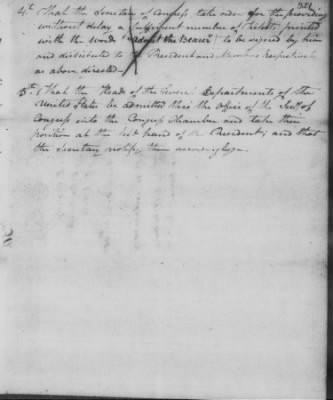 321
4th That the Secretary of Congress take order for the providing
without delay a sufficient number of tickets printed
with the words "admit the Bearer" to be signed by him
and distributed to the President and Members respectively
as above directed—
5th That the Heads of the several Departments of the
United States be admitted thro the office of the Secy of
Congress into the Congress Chamber and take their
position at the left hand of the President, and that
the Secretary notify them accordingly.